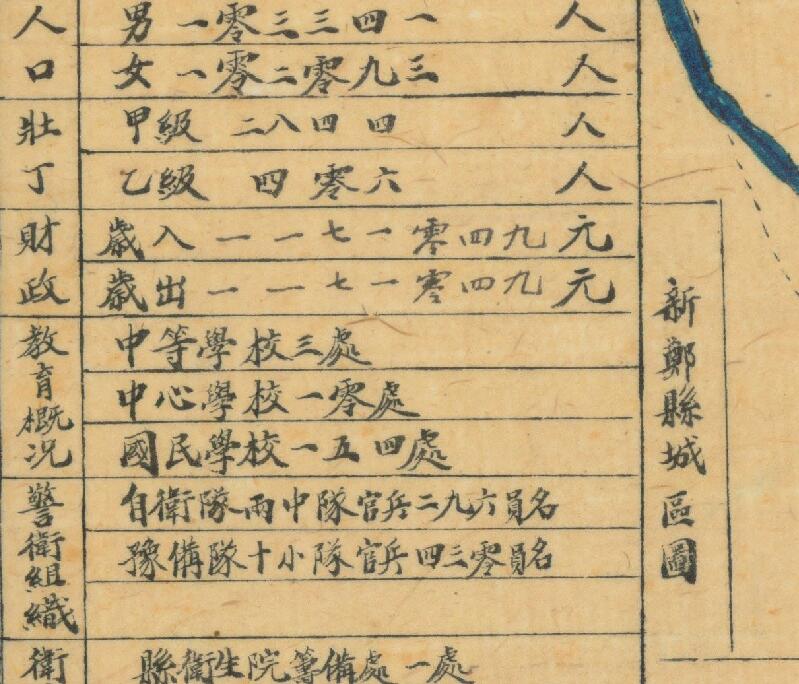 人口
男一零三三四一 人
女一零二零九三 人
壯丁
甲級 二八四四 人
乙級 四零六 人
財政
歲入一一七一零四九元
歲出一一七一零四九元
教育概况
中等學校三處
中心學校一零處
國民學校一五四處
警衛組織
自衛隊兩中隊官兵二九六員名
豫備隊十小隊官兵四三零員名
衛
縣衛生院籌備處一處
新鄭縣城區圖